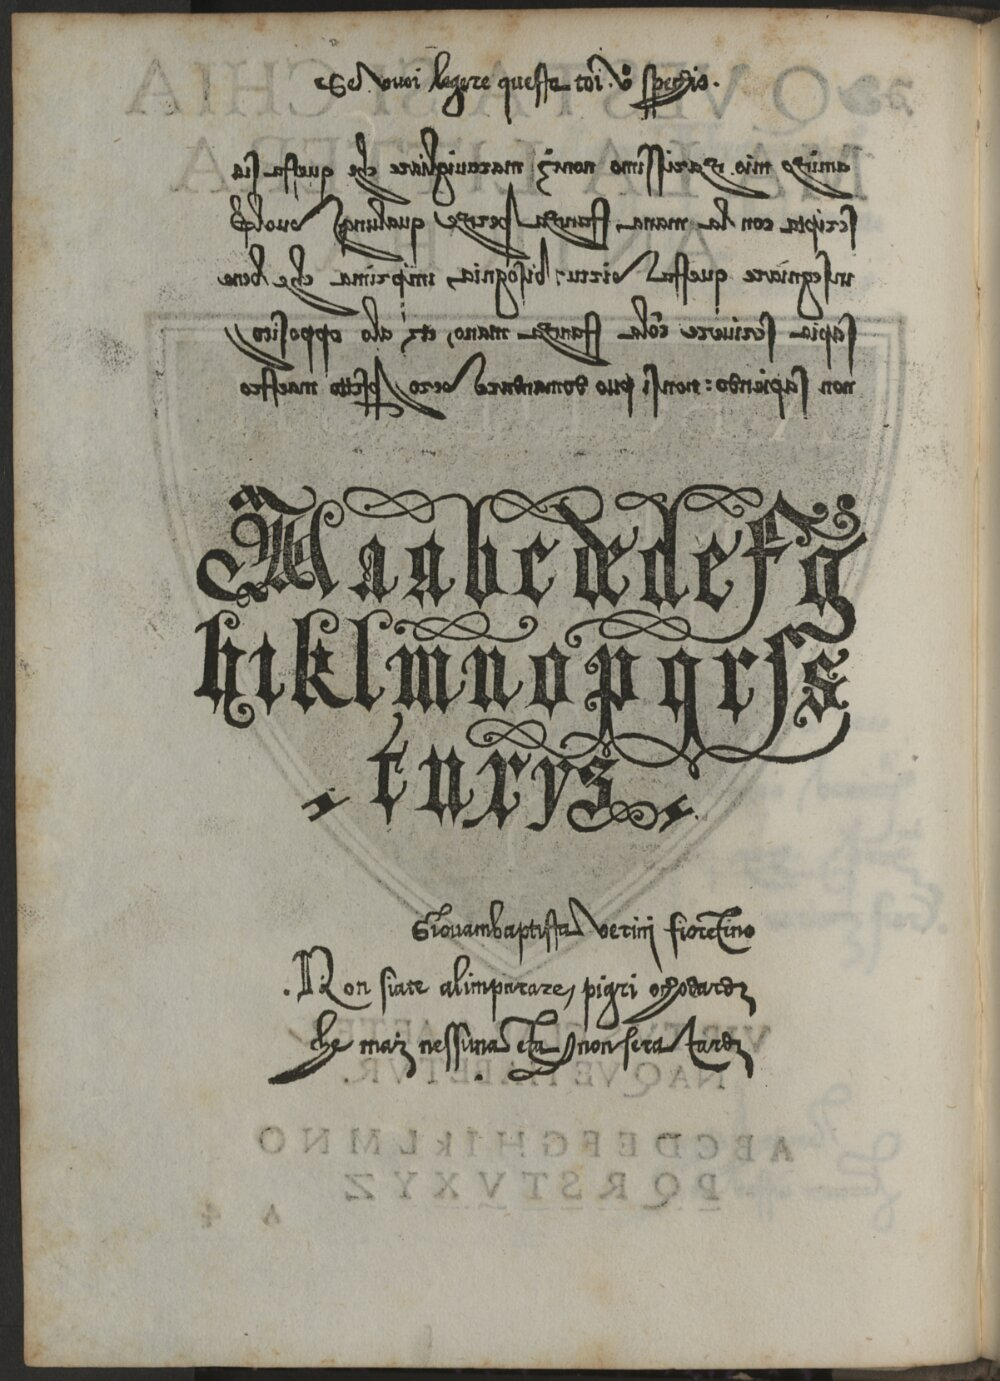 Se vuoi legere questa toi. u spechio.
amicho mio charissimo non ti marauigliare che questa sia
scripta con la mana stancha perche qualunq vuole
insegniare questa virtu, bisognia, imprima che bene
sapia scriuere cōla stancha mano, et alo opposito
non sapiendo: non si puo domandare vero pfetto maestro
A a a b c d d e f g
h i k l m n o p q r s s
t u x y z
Giouambaptista Verini fiorētino
Non siate alimparare, pigri o chodardi
che mai nessuna eta non sera tardi